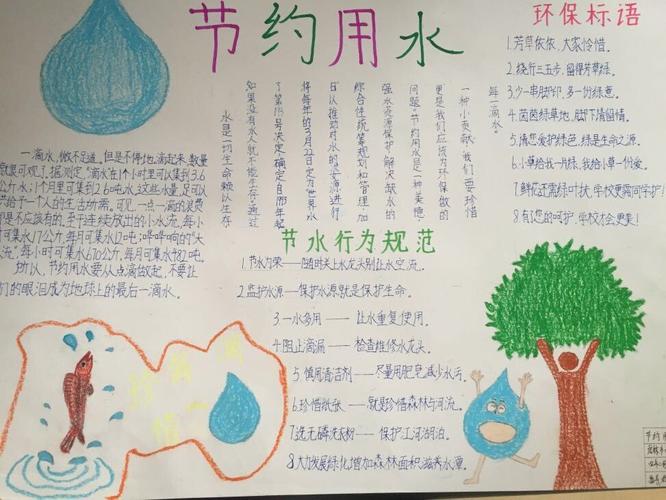 节约用水
环保标语
1.芳草依依,大家怜惜.
2.绕行三五步,留得芳草绿.
3.少一串脚印,多一份绿意.
4.茵茵绿草地,脚下请留情.
5.请您爱护绿色,绿是生命之源.
6.小草给我一片绿,我给小草一份爱.
7.鲜花还需绿叶扶,学校更需同学护!
8.有您的呵护,学校才会更美!
水是一切生命赖以生存
如果没有水人就不能生存通过
了第193号决定,确定自
将每年的3月22日定为世界水
日以推动对水的
综合性统筹规划和管理加
强水资源保护解决缺水的
问题节约用水是一种美德
更是我们应该为环保做的
一种小贡献我们要珍惜
每一滴水"
一滴水,微不足道.但是不停地滴起来,数量
就很可观了.据测定,"滴水在1个小时里可以集到3.6
公斤水;1个月里可集到2.6吨水,这些水量,足可以
供给于一个人的生活所需.可见,一点一滴的浪费
都是不应该有的.至于连续放出的小水流,每小
时可集水17公斤,每月可集水12吨;哗哗响的"大
流",每小时可集水670公斤,每月可集水482吨.
所以,节约用水要从点滴做起,不要让
们的眼泪成为地球上的最后一滴水.
节水行为规范
1.节水为荣——随时关上水龙头别让水空流.
2.监护水源——保护水源就是保护生命.
3.一水多用——让水重复使用.
4.阻止滴漏——检查维修水龙头.
5.慎用清洁剂——尽量用肥皂减少水污.
6.珍惜纸张——就是珍惜森林与河流.
7.选无磷洗衣粉——保护江河湖泊.
8.大力发展绿化,增加森林面积滋养水源.
珍惜每一滴
节约用